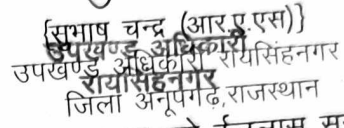 {सुभाष चन्द्र (आर.ए.एस)}
उपखण्ड अधिकारी
उपखण्ड अधिकारी, रायसिंहनगर
रायसिंहनगर
जिला अनूपगढ़,राजस्थान